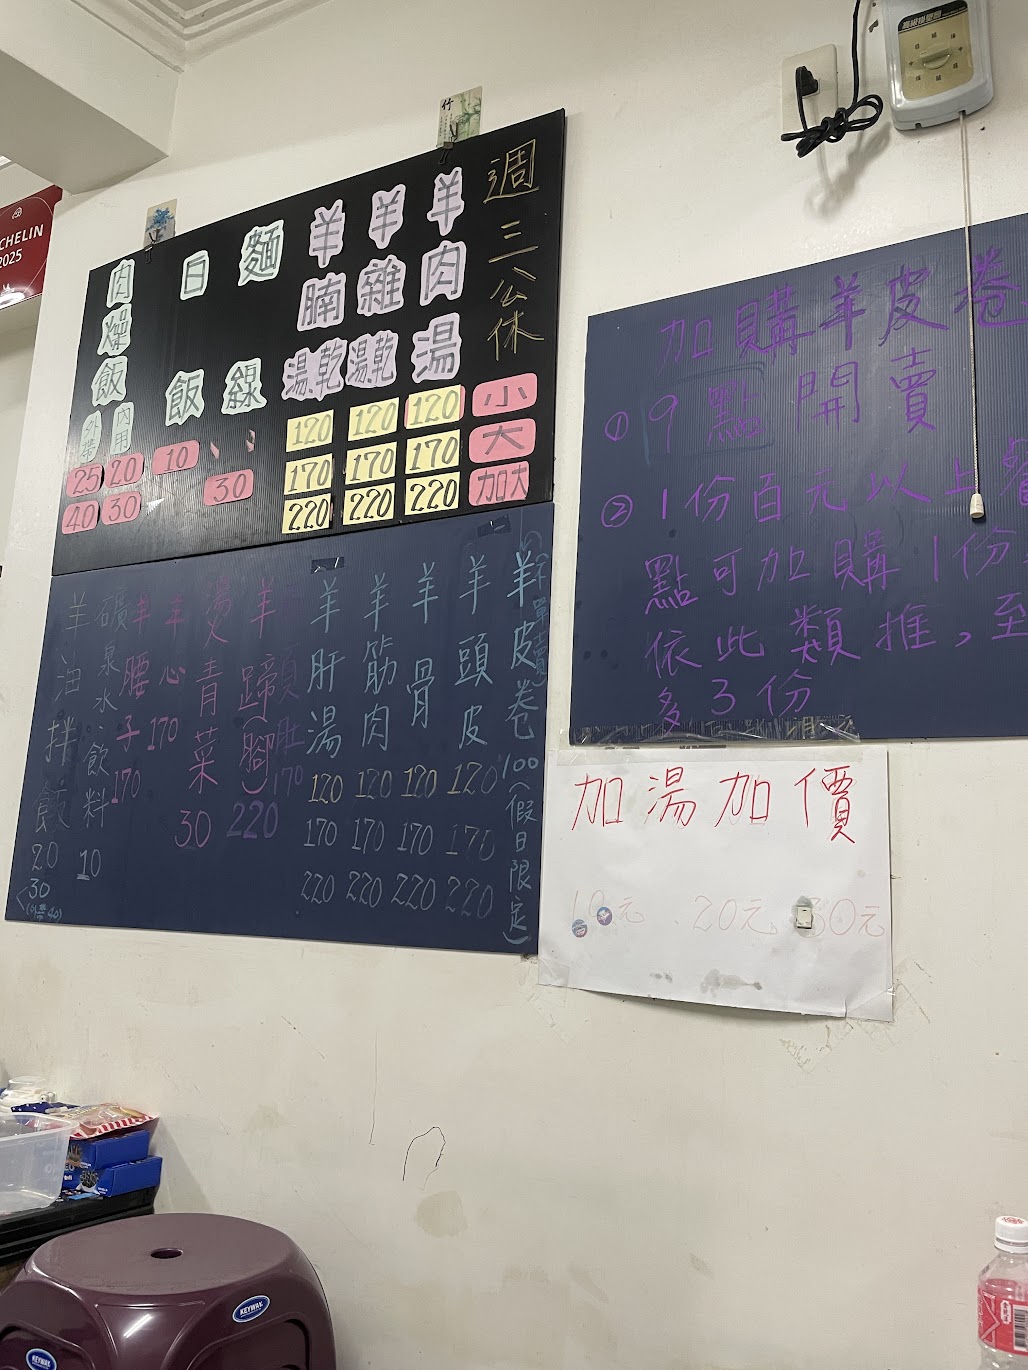 CHELIN
2025
竹
週三公休
小
大
加大
羊肉湯
120
170
220
羊雜湯.乾
120
170
220
羊腩湯.乾
120
170
220
麵線
30
白飯
10
肉燥飯
內用
20
30
外帶
25
40
羊皮卷100(假日限定)
(不單賣)
羊頭皮
120
170
220
羊骨
120
170
220
羊筋肉
120
170
220
羊肝湯
120
170
220
170
羊蹄(腳)
220
燙青菜
30
羊心
170
羊腰子
170
礦泉水.飲料
10
羊油拌飯
20
30
加購羊皮卷
① 9點開賣
② 1份百元以上
點可加購1份
依此類推,至
多3份
加湯加價
10元、20元、30元
KEYWAY
KEYWAY